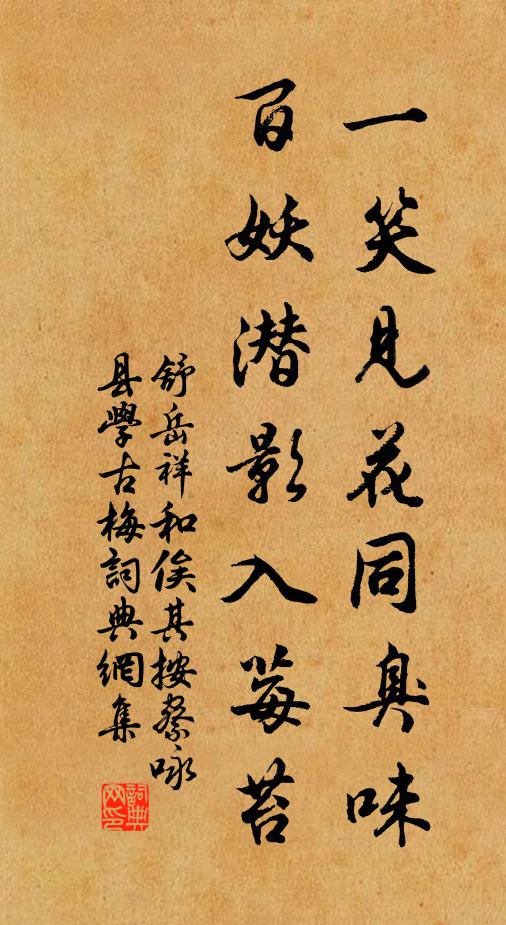 一笑見花同臭味
百妖潜影入莓苔
舒岳祥和俟其按察咏
县學古梅詞典網集
詞典網印